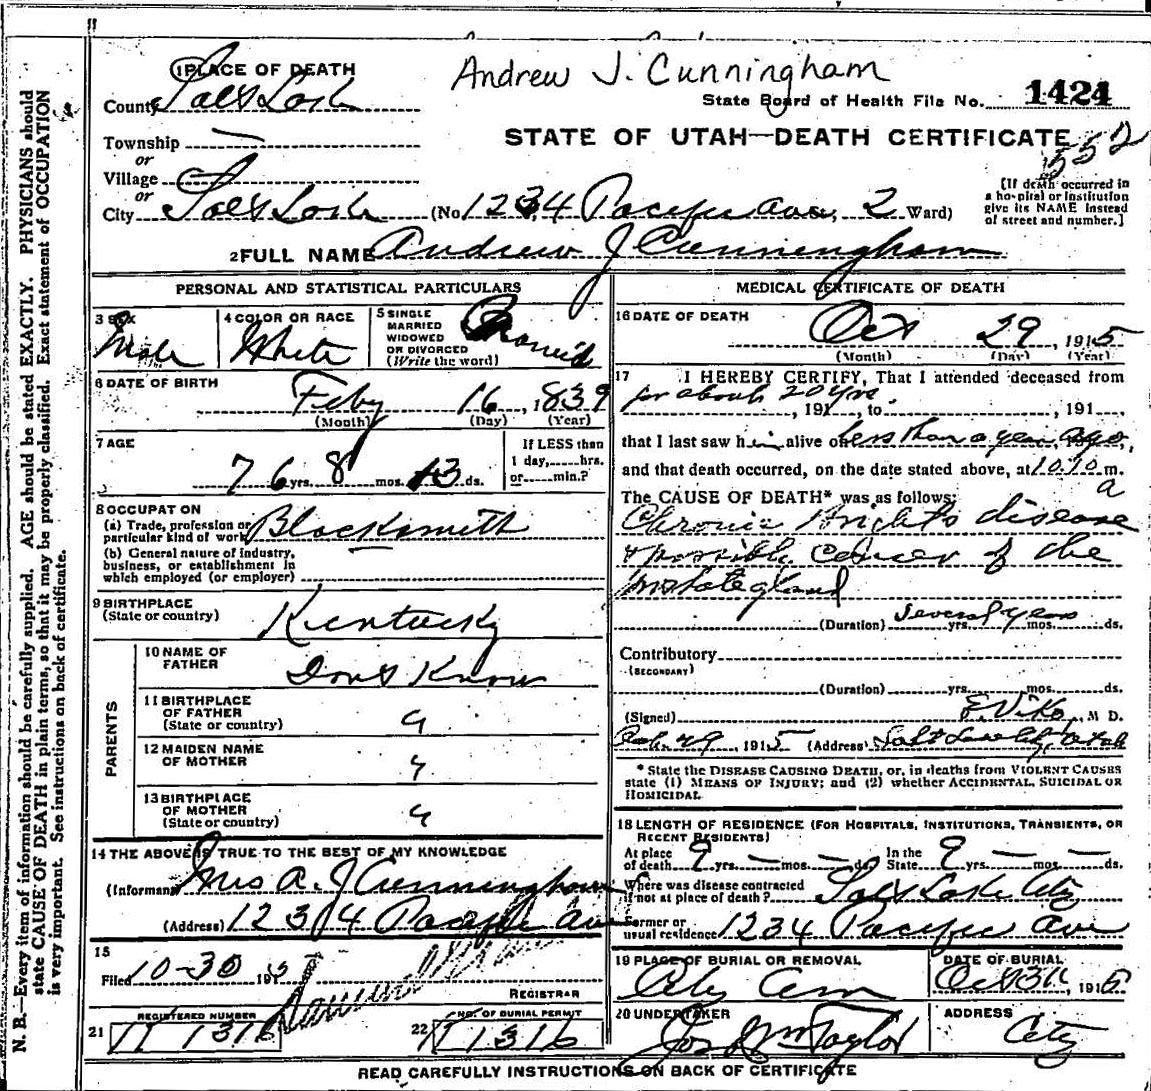 N. B.—Every item of information should be carefully supplied. AGE should be stated EXACTLY. PHYSICIANS should
state CAUSE OF DEATH in plain terms, so that it may be properly classified. Exact statement of OCCUPATION
is very important. See instructions on back of certificate.
Andrew J. Cunningham
1 PLACE OF DEATH
County Salt Lake
State Board of Health File No. 1424
Township —
or
STATE OF UTAH—DEATH CERTIFICATE
552
Village
or
City Salt Lake (No 1234 Pacific Ave, 2 Ward)
[If death occurred in
a hospital or institution
give its NAME instead
of street and number.]
2 FULL NAME Andrew J Cunningham
PERSONAL AND STATISTICAL PARTICULARS
3 SEX
Male
4 COLOR OR RACE
White
5 SINGLE
MARRIED
WIDOWED
OR DIVORCED
(Write the word)
Married
6 DATE OF BIRTH
Feby 16, 1839
(Month) (Day) (Year)
7 AGE
76 yrs. 8 mos. 13 ds.
If LESS than
1 day, hrs.
or min.?
8 OCCUPATION
(a) Trade, profession or
particular kind of work Blacksmith
(b) General nature of industry,
business, or establishment in
which employed (or employer)
9 BIRTHPLACE
(State or country) Kentucky
PARENTS
10 NAME OF
FATHER Dont Know
11 BIRTHPLACE
OF FATHER
(State or country)
12 MAIDEN NAME
OF MOTHER
13 BIRTHPLACE
OF MOTHER
(State or country)
14 THE ABOVE IS TRUE TO THE BEST OF MY KNOWLEDGE
(Informant Mrs A. J Cunningham
(Address) 1234 Pacific ave
15
Filed 10-30 1915
REGISTRAR
REGISTERED NUMBER
21 1316
NO. OF BURIAL PERMIT
22 1316
MEDICAL CERTIFICATE OF DEATH
16 DATE OF DEATH
Oct 29, 1915
(Month) (Day) (Year)
17 I HEREBY CERTIFY, That I attended deceased from
for about 20 yrs. , 191 , to , 191
that I last saw him alive on less than a year ago,
and that death occurred, on the date stated above, at 10.10 m.
a
The CAUSE OF DEATH* was as follows:
Chronic Brights disease
& possible cancer of the
prostate gland
(Duration) Several years yrs. mos. ds.
Contributory
(SECONDARY)
(Duration) yrs. mos. ds.
(Signed) E. Viko, M D.
29, 1915 (Address) Salt Lake City, Utah
* State the DISEASE CAUSING DEATH, or, in deaths from VIOLENT CAUSES
state (1) MEANS OF INJURY; and (2) whether ACCIDENTAL, SUICIDAL OR
HOMICIDAL
18 LENGTH OF RESIDENCE (FOR HOSPITALS, INSTITUTIONS, TRANSIENTS, OR
RECENT RESIDENTS)
At place
of death 9 yrs. — mos. — ds. In the
State 9 yrs. — mos. — ds.
Where was disease contracted
if not at place of death? Salt Lake City
Former or
usual residence 1234 Pacific Ave
19 PLACE OF BURIAL OR REMOVAL
City Cem
DATE OF BURIAL
Oct 31, 1915
20 UNDERTAKER
Jos Wm Taylor
ADDRESS
City
READ CAREFULLY INSTRUCTIONS ON BACK OF CERTIFICATE